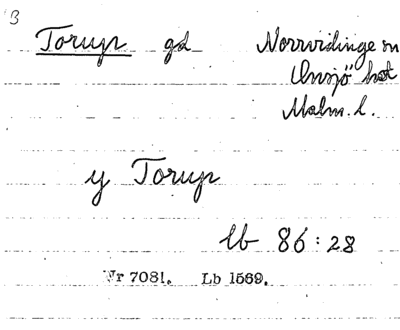 3
Torup gd Norrvidinge sn
Onsjö hd
Malm. l.
y Torup
lb 86:28
Nr 7081. Lb 1569.